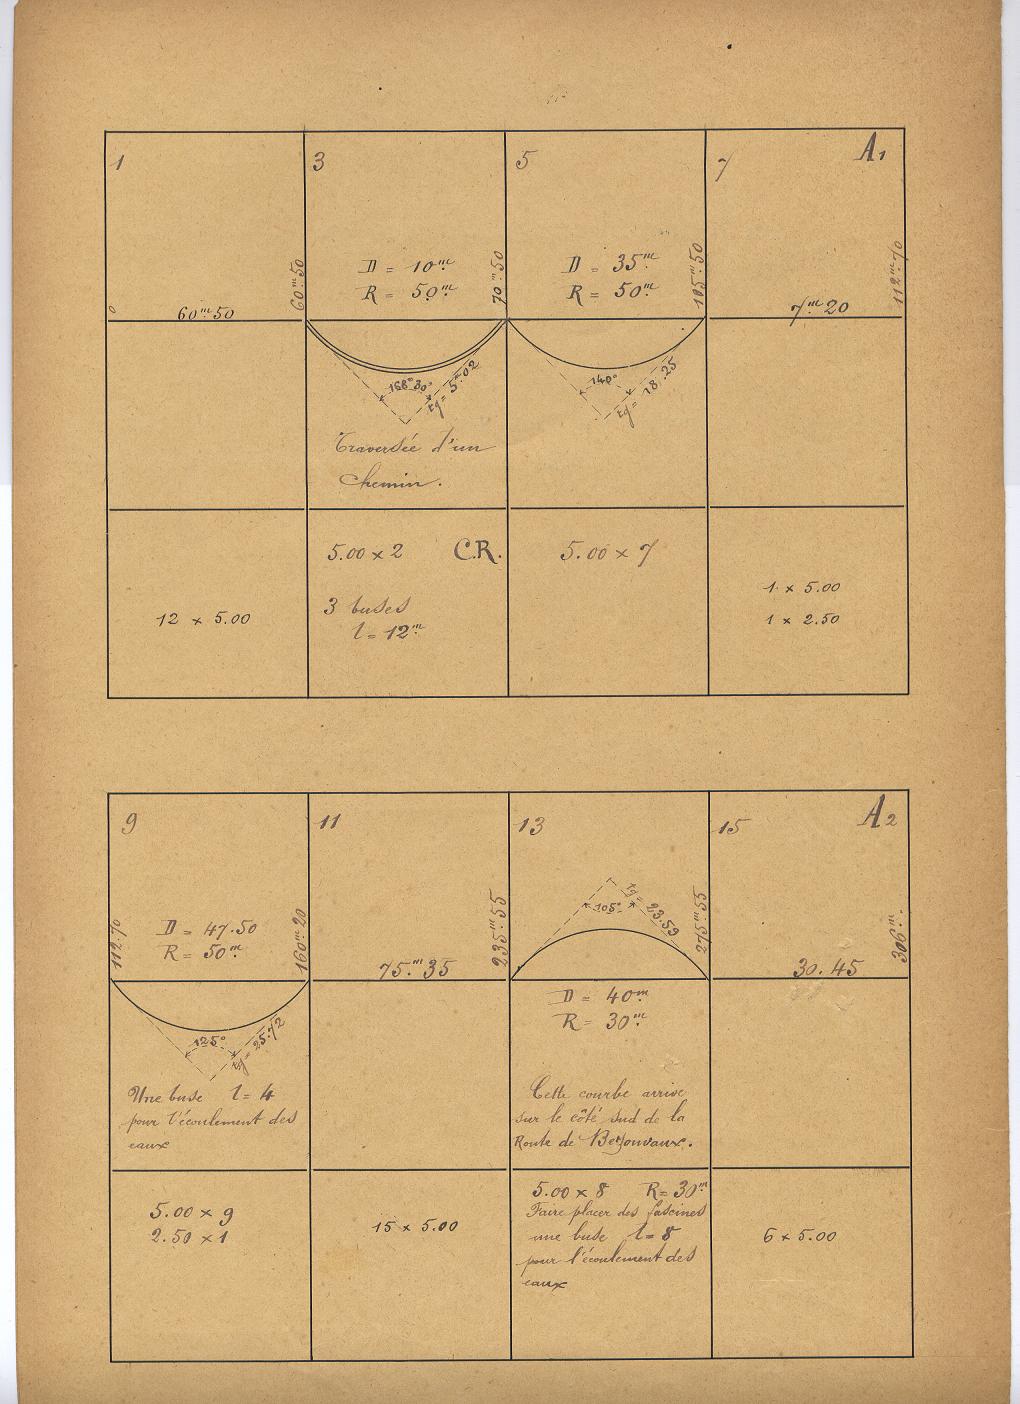 1
0
60m50
60m50
12 x 5.00
3
D = 10m
R = 50m
70m50
168°30'
tg = 5m02
Traversée d'un
chemin.
5.00 x 2 C.R.
3 buses
l = 12m
5
D = 35m
R = 50m
105m50
140°
tg = 18.25
5.00 x 7
7 A1
7m20
112m70
1 x 5.00
1 x 2.50
9
112.70
D = 47.50
R = 50m
160m20
125°
tg = 25.72
Une buse l = 4
pour l'écoulement des
eaux
5.00 x 9
2.50 x 1
11
75.m35
235m55
15 x 5.00
13
105°
tg = 23.59
275m55
D = 40m
R = 30m
Cette courbe arrive
sur le côté sud de la
Route de Bezonvaux.
5.00 x 8 R = 30m
Faire placer des fascines
une buse l = 8
pour l'écoulement des
eaux
15 A2
30.45
306m
6 x 5.00